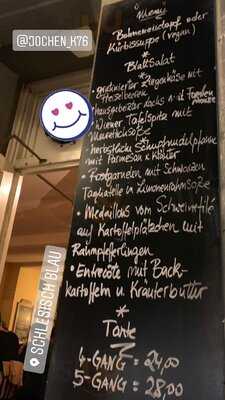 @JOCHEN_K76
Menü
Bohneneintopf oder
Kürbissuppe (vegan)
*
Blattsalat
*
• gratinierter Ziegenkäse mit
Heidelbeeren
• hausgebeizter Lachs mit
• Wiener Tafelspitz mit
Meerrettichsoße
• herbstliche Schupfnudelpfanne
mit Parmesan + Kräuter
• Riesengarnelen mit
Tagliatelle in Limonenrahmsoße
• Medaillons vom Schweinefilet
auf Kartoffelplätzchen mit
Rahmpfefferlingen
• Entrecôte mit Back-
kartoffeln u. Kräuterbutter
*
Tarte
4-GANG = 24,00
5-GANG = 28,00
SCHLESISCH BLAU